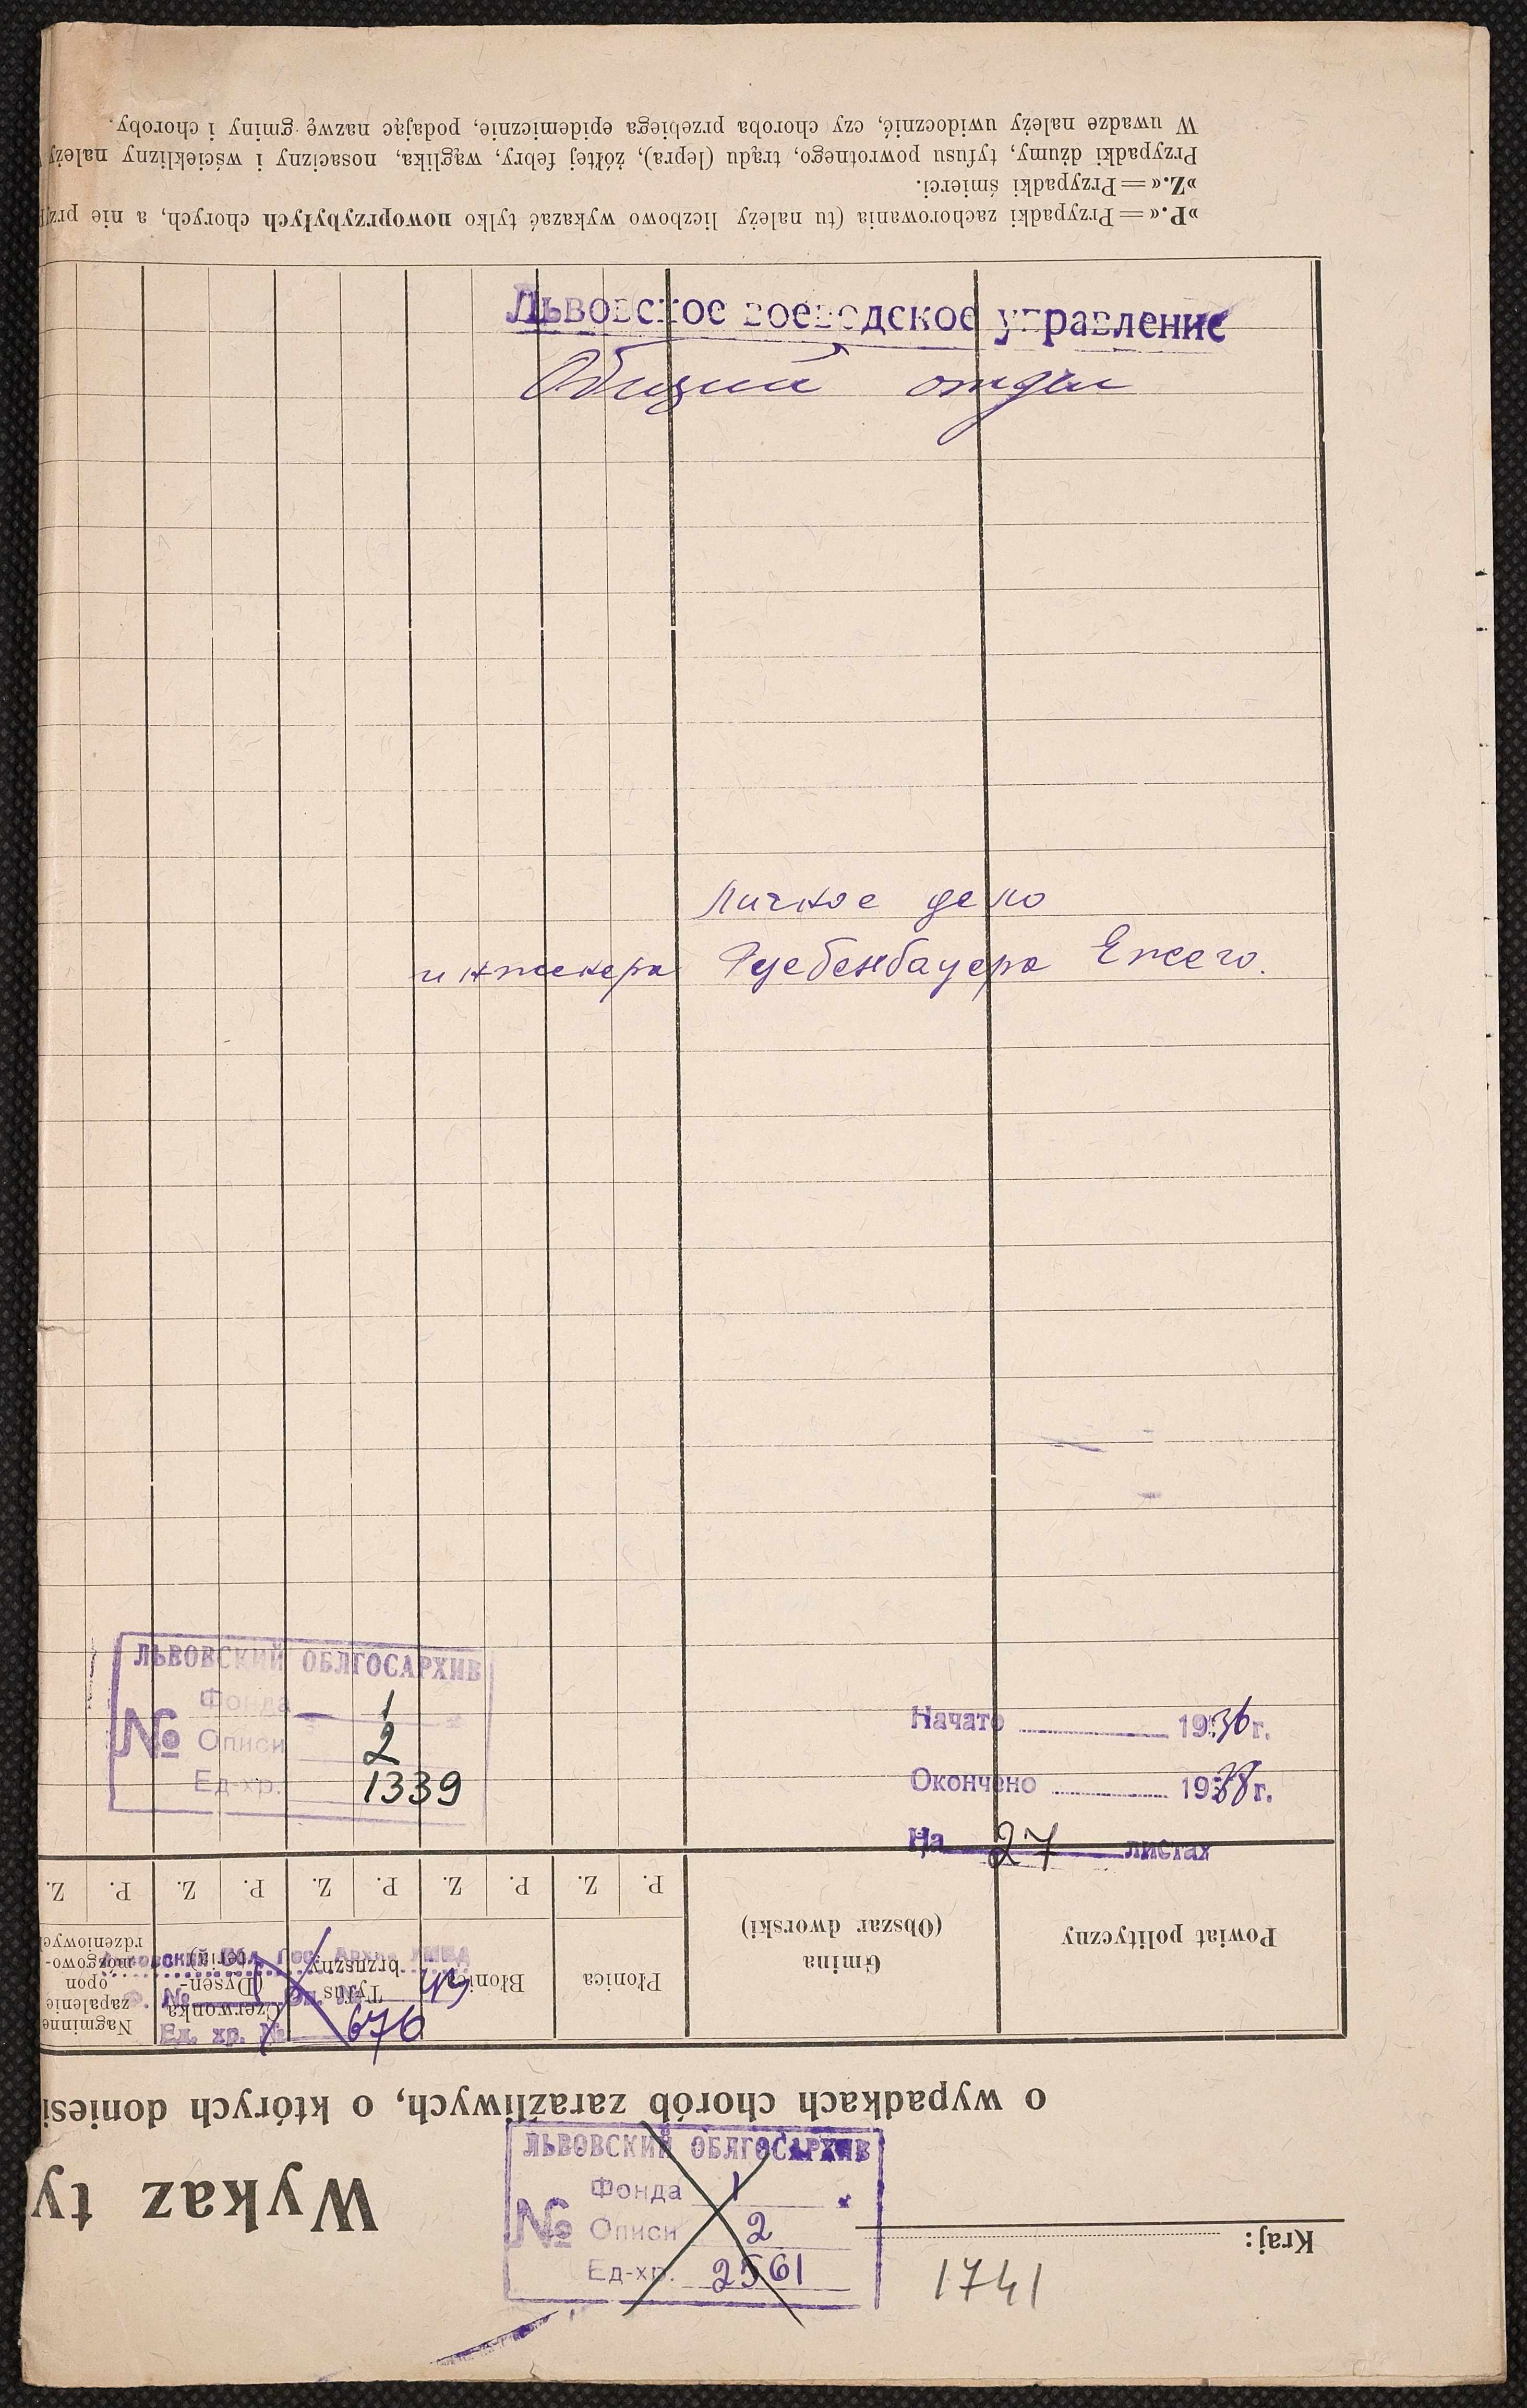 Львовское воеводское управление
Общий отдел
Личное дело
инженера Ежего.
ЛЬВОВСКИЙ ОБЛГОСАРХИВ
Фонда 1
№ Описи 2
Ед-хр. 1339
Начато 1936 г.
Окончено 1938 г.
На 27 листах
Ед. хр. № 676
ЛЬВОВСКИЙ ОБЛГОСАРХИВ
Фонда 1
№ Описи 2
Ед-хр. 2561
1741
Kraj:
Wykaz ty
o wypadkach chorób zaraźliwych, o których doniesi
Powiat polityczny
Gmina
(Obszar dworski)
Płonica
Błonica
Tyfus
brzuszny
Czerwonka
(Dysen-
terja)
Nagminne
zapalenie
opon
mózgowo-
rdzeniowych
P. Z. P. Z. P. Z. P. Z. P. Z.
»P.« = Przypadki zachorowania (tu należy liczbowo wykazać tylko nowoprzybyłych chorych, a nie
»Z.« = Przypadki śmierci.
Przypadki dżumy, tyfusu powrotnego, trądu (lepra), żółtej febry, wąglika, nosacizny i wścieklizny należy
W uwadze należy uwidocznić, czy choroba przebiega epidemicznie, podając nazwę gminy i choroby.